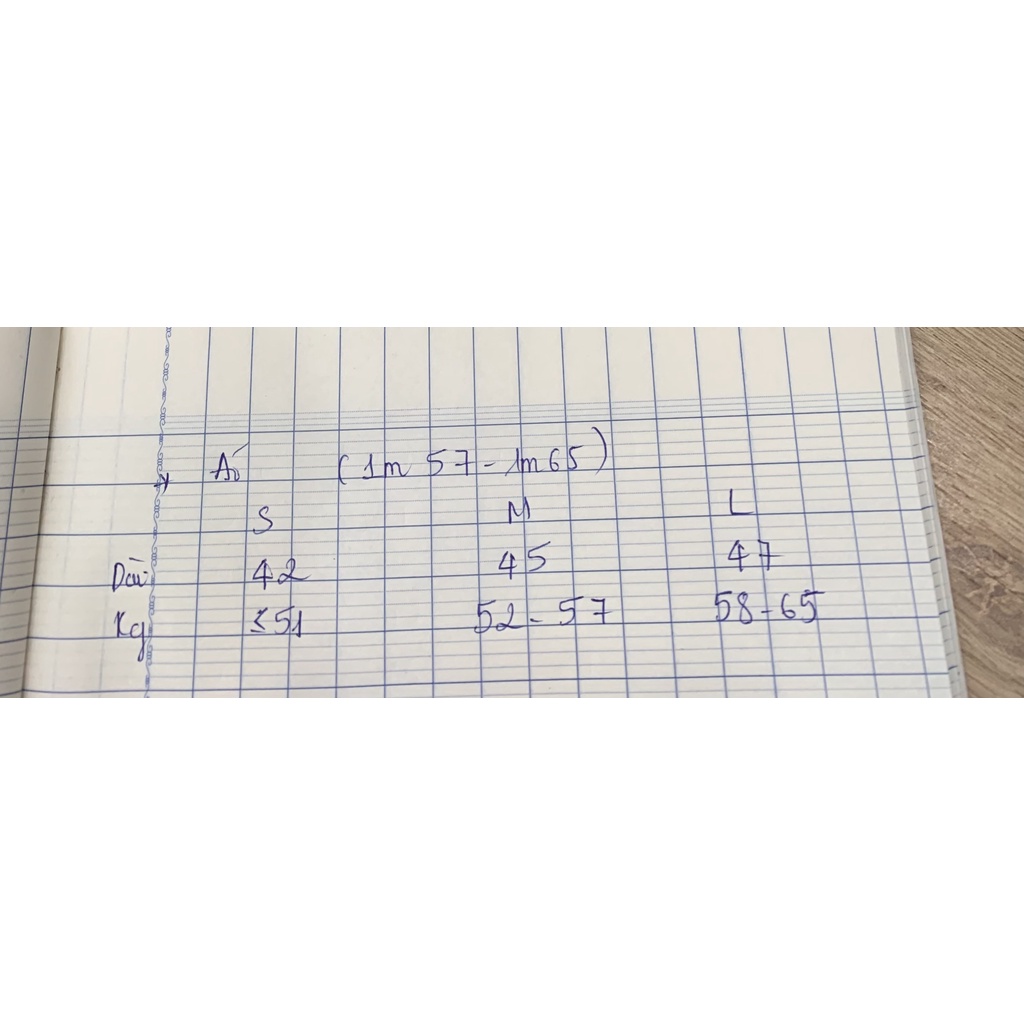 * Áo (1m57 - 1m65)
S M L
Dài 42 45 47
Kg ≤51 52 - 57 58 - 65